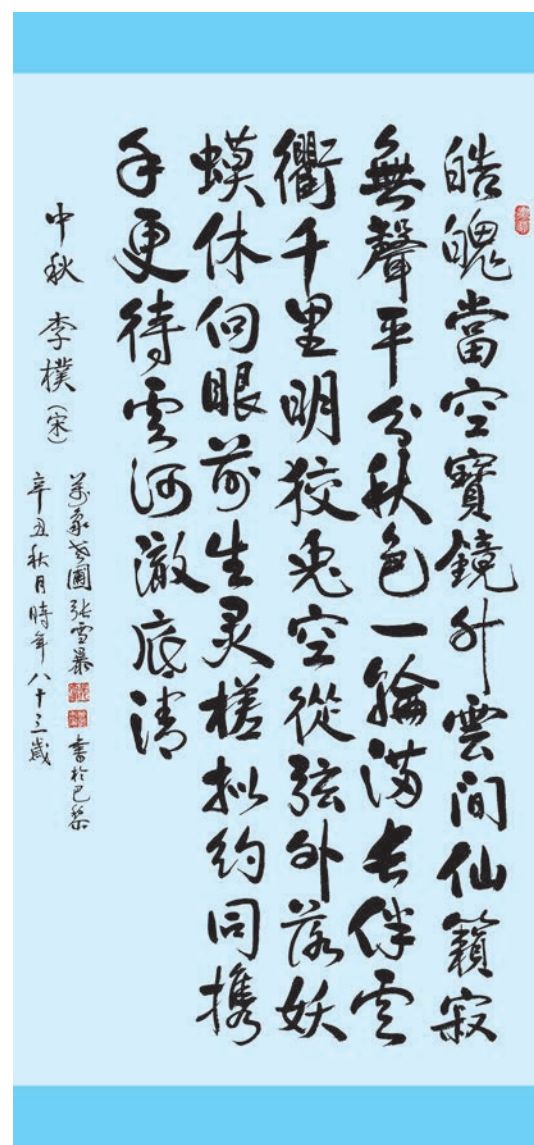 皓魄當空寶鏡升雲間仙籟寂
無聲平分秋色一輪滿長伴雲
衢千里明狡兎空從弦外落妖
蟆休向眼前生灵槎拟约同携
手更待雲河澈底清
中秋 李樸（宋）
張雪暴 書於巴黎
辛丑秋月時年八十三歲